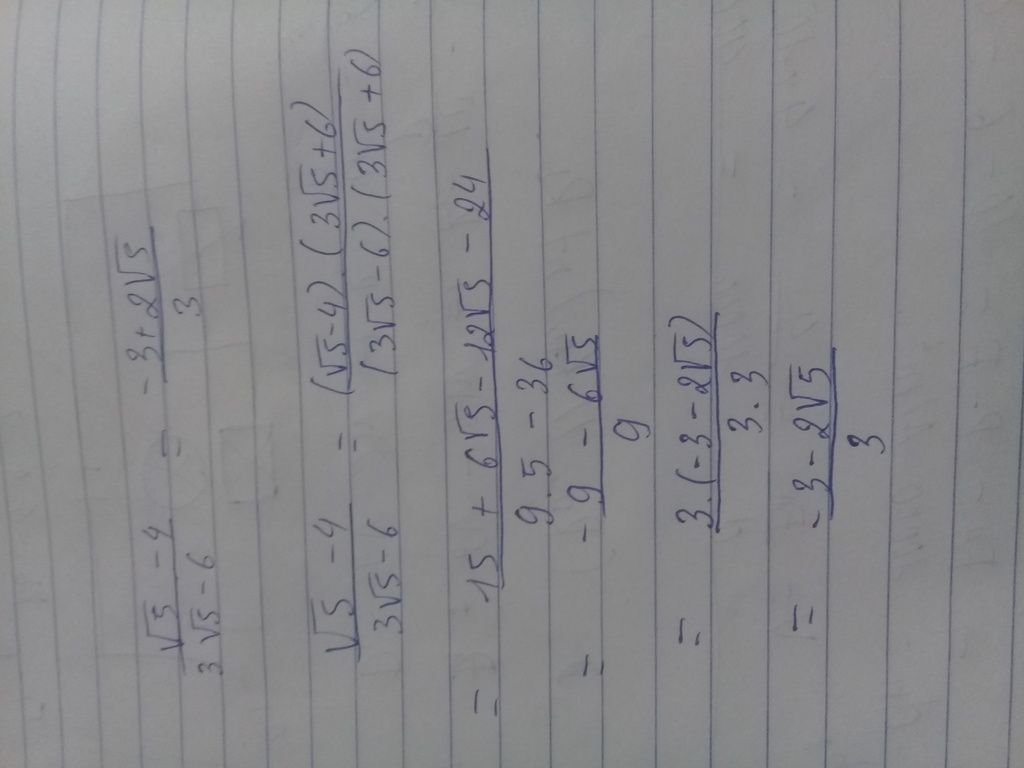 √5 - 4 = - 3 + 2√5
3√5 - 6 3
√5 - 4 = (√5 - 4) (3√5 + 6)
3√5 - 6 (3√5 - 6) . (3√5 + 6)
= 15 + 6√5 - 12√5 - 24
9 . 5 - 36
= - 9 - 6√5
9
= 3 . (- 3 - 2√5)
3 . 3
= - 3 - 2√5
3